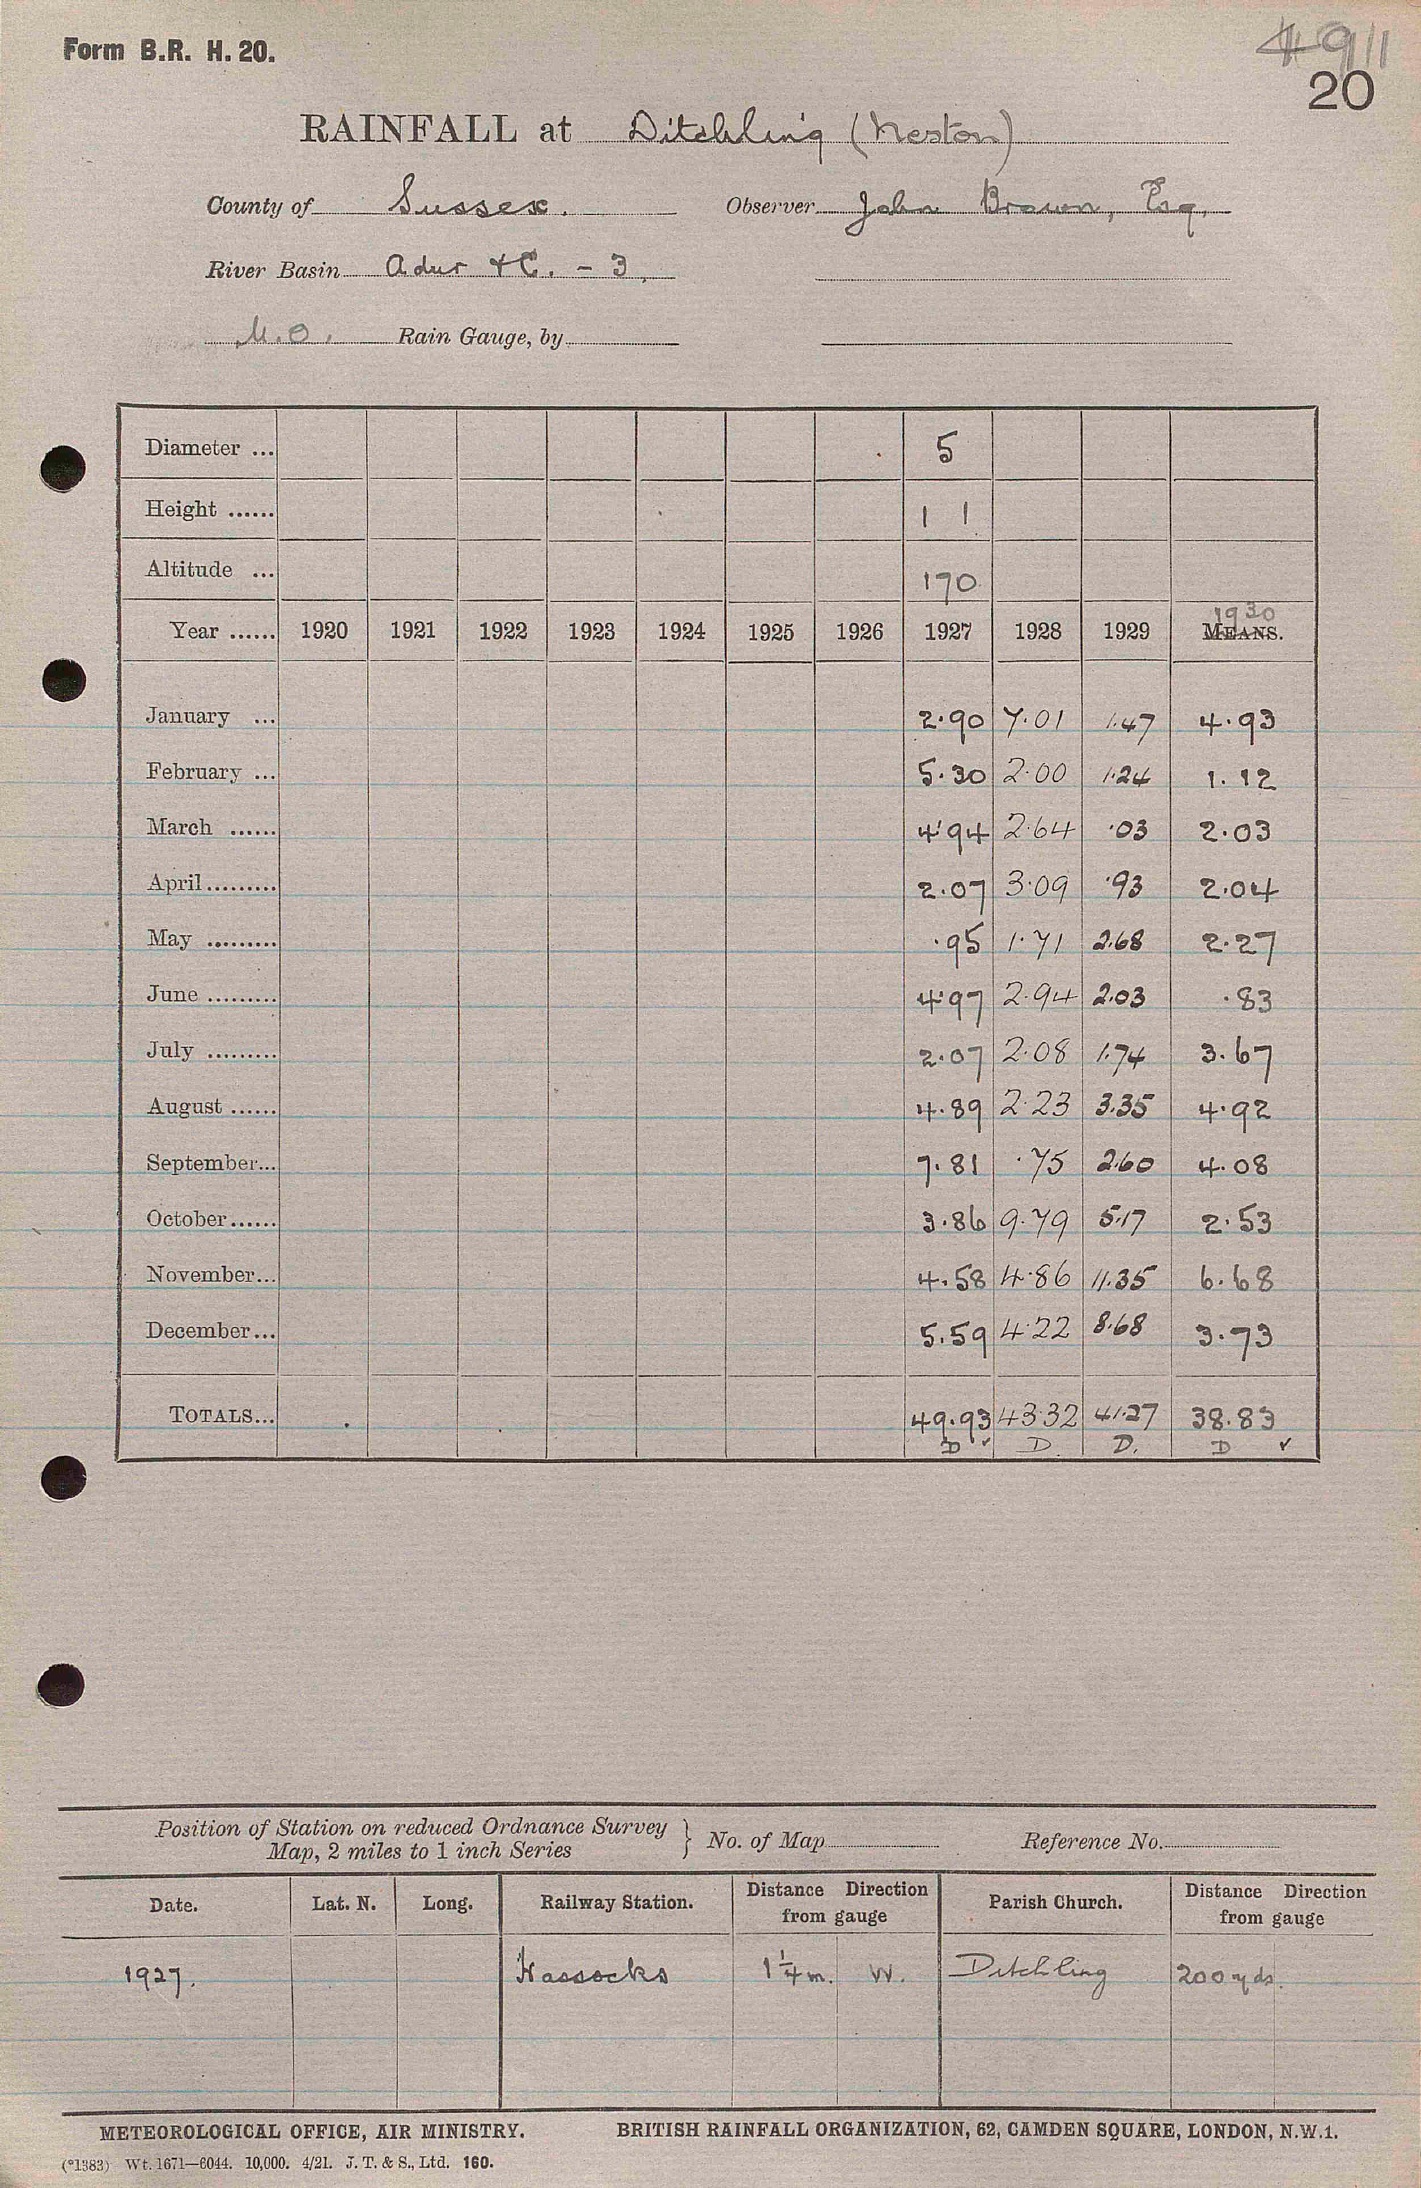 Form B.R. H. 20.
4911
20
RAINFALL at Ditchling (Neston)
County of Sussex. Observer John Brown, Esq,
River Basin Adur &C. - 3,
M.O. Rain Gauge, by
Diameter ... 5
Height ...... 1 1
Altitude ... 170
1930
Year ...... 1920 1921 1922 1923 1924 1925 1926 1927 1928 1929 MEANS.
January ... 2.90 7.01 1.47 4.93
February ... 5.30 2.00 1.24 1.12
March ...... 4.94 2.64 .03 2.03
April......... 2.07 3.09 .93 2.04
May ......... .95 1.71 2.68 2.27
June ......... 4.97 2.94 2.03 .83
July ......... 2.07 2.08 1.74 3.67
August ...... 4.89 2.23 3.35 4.92
September... 7.81 .75 2.60 4.08
October...... 3.86 9.79 5.17 2.53
November... 4.58 4.86 11.35 6.68
December... 5.59 4.22 8.68 3.73
TOTALS... 49.93 43.32 41.27 38.83
D ✓ D. D. D ✓
Position of Station on reduced Ordnance Survey
Map, 2 miles to 1 inch Series } No. of Map Reference No.
Date. Lat. N. Long. Railway Station. Distance Direction from gauge Parish Church. Distance Direction from gauge
1927. Hassocks 1 1/4 m. W. Ditchling 200 yds.
METEOROLOGICAL OFFICE, AIR MINISTRY. BRITISH RAINFALL ORGANIZATION, 62, CAMDEN SQUARE, LONDON, N.W.1.
(*1383) Wt. 1671—6044. 10,000. 4/21. J. T. & S., Ltd. 160.